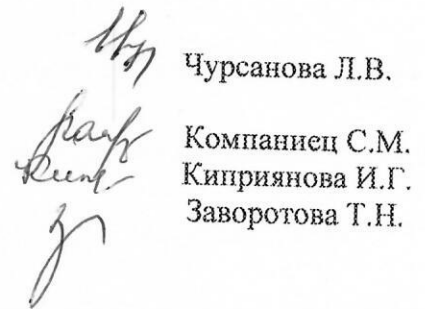 Чурсанова Л.В.
Компаниец С.М.
Киприянова И.Г.
Заворотова Т.Н.